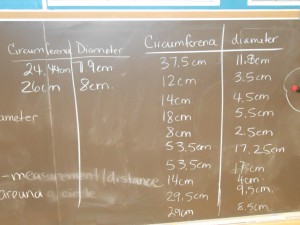 Circumferena Diameter
24.44cm 7.9cm
26cm 8cm.
ameter
-measurement/distance
around a circle
Circumferena diameter
37.5cm 11.8cm
12cm 3.5cm
14cm 4.5cm
18cm 5.5cm
8cm 2.5cm
53.5cm 17.25cm
53.5cm
14cm 4cm
29.5cm 9.5cm.
8.5cm.